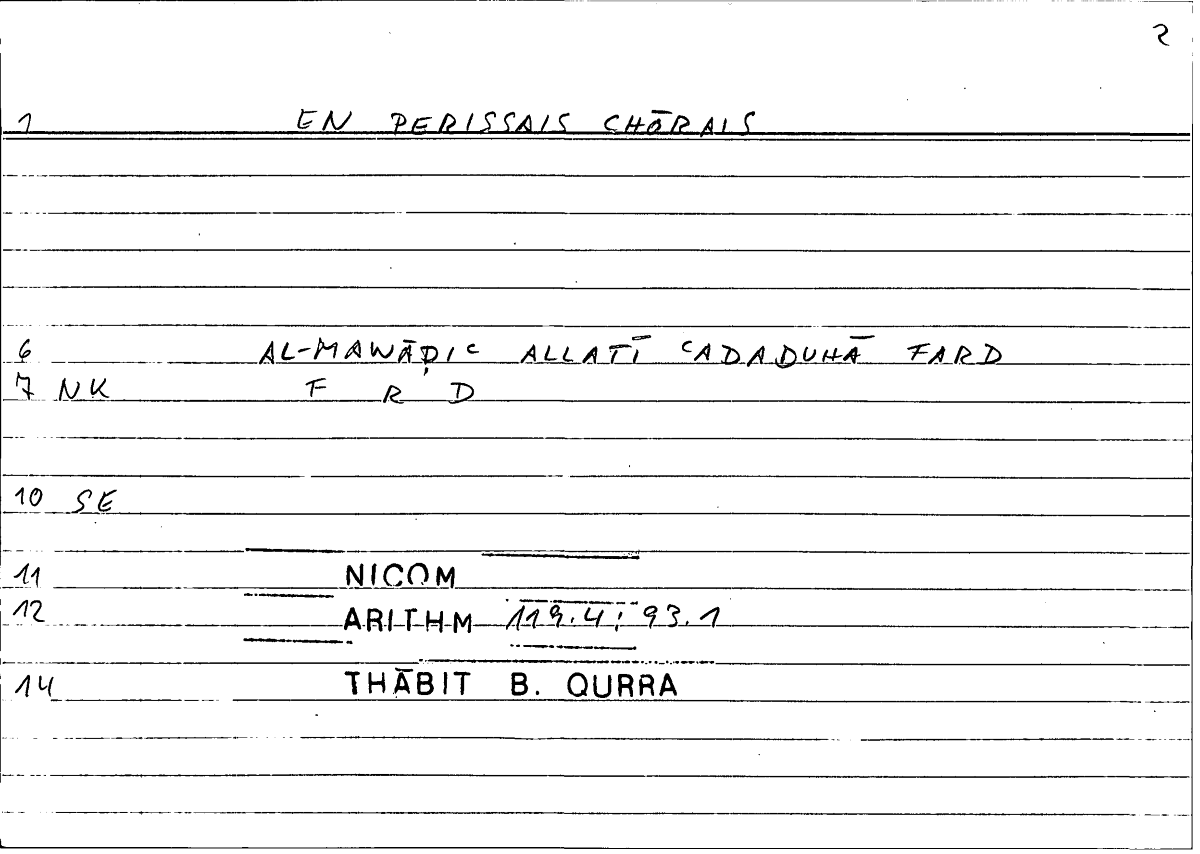 2
1 EN PERISSAIS CHŌRAIS
6 AL-MAWĀḌIᶜ ALLATĪ ᶜADADUHĀ FARD
7 NK F R D
10 SE
11 NICOM
12 ARITHM 119.4; 93.1
14 THĀBIT B. QURRA